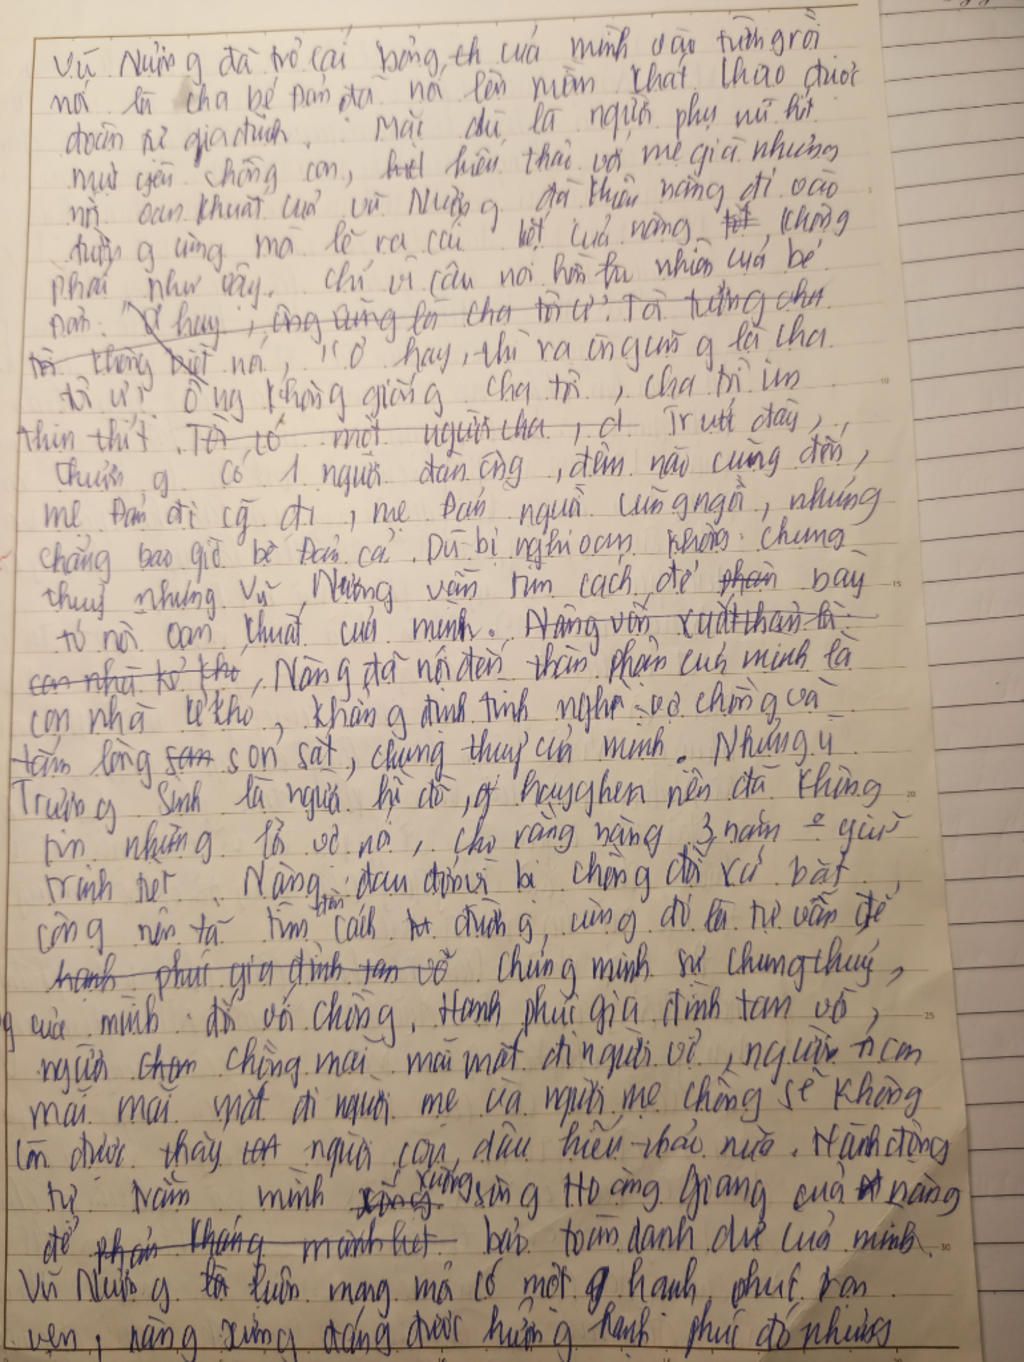 Vũ Nương đã trỏ cái bóng của mình vào tường rồi
nói là cha bé Đản đã nói lên niềm khát khao được
đoàn tụ gia đình. Mặc dù là người phụ nữ hết
mực yêu chồng con, hiếu thảo với mẹ già nhưng
nỗi oan khuất của Vũ Nương đã khiến nàng đi vào
đường cùng mà lẽ ra cái kết của nàng không
phải như vậy. Chỉ vì câu nói hồn nhiên của bé
Đản: "Ơ hay, ông cũng là cha tôi ư? Tôi tưởng cha
tôi không biết nói, "Ơ hay, thì ra ông cũng là cha
tôi ư? Ông không giống cha tôi, cha tôi im
thin thít. Tôi có một người cha, Trước đây,
thường có 1 người đàn ông, đêm nào cũng đến,
mẹ Đản đi cũng đi, mẹ Đản ngồi cũng ngồi, nhưng
chẳng bao giờ bế Đản cả. Dù bị nghi oan không chung
thuỷ nhưng Vũ Nương vẫn tìm cách để phân bày
tỏ nỗi oan khuất của mình. Nàng vốn xuất thân là
con nhà kẻ khó, Nàng đã nói đến thân phận của mình là
con nhà kẻ khó, khẳng định tình nghĩa vợ chồng và
tấm lòng son son sắt, chung thuỷ của mình. Nhưng vì
Trương Sinh là người hồ đồ, hay ghen nên đã không
tin những lời vợ nói, cho rằng nàng 3 năm giữ
trinh tiết. Nàng đau đớn vì bị chồng đối xử bất
công nên đã tìm đến cách đường cùng đó là tự vẫn để
hạnh phúc gia đình tan vỡ chứng minh sự chung thuỷ
của mình đối với chồng. Hạnh phúc gia đình tan vỡ,
người chồng mãi mãi mất đi người vợ, người con
mãi mãi mất đi người mẹ và người mẹ chồng sẽ không
còn được thấy người con dâu hiếu thảo nữa. Hành động
tự trầm mình xuống sông Hoàng Giang của nàng
để phản kháng mãnh liệt bảo toàn danh dự của mình.
Vũ Nương luôn mong mỏi có một hạnh phúc trọn
vẹn, nàng xứng đáng được hưởng hạnh phúc đó nhưng